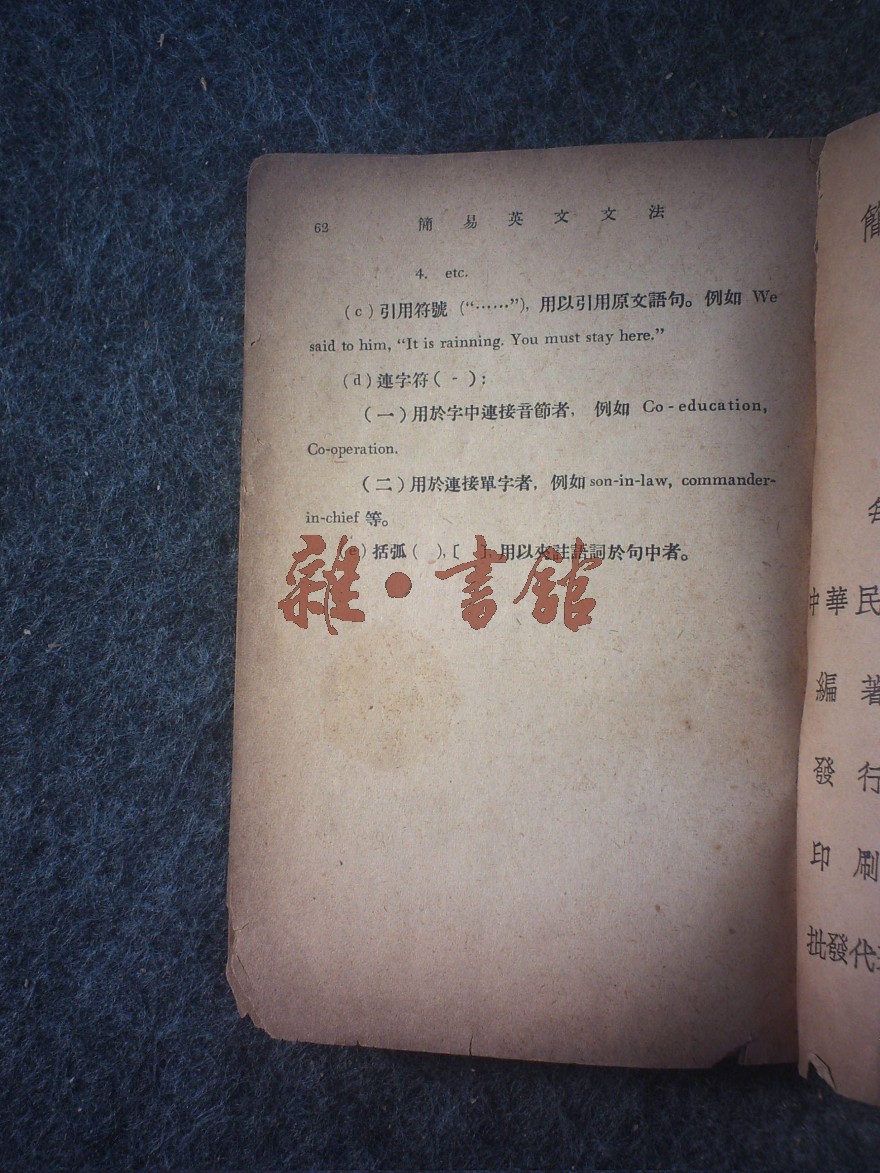 62 簡易英文文法
4. etc.
(c)引用符號 (“……”), 用以引用原文語句。例如 We
said to him, “It is rainning. You must stay here.”
(d)連字符( - ):
(一)用於字中連接音節者, 例如 Co-education,
Co-operation.
(二)用於連接單字者, 例如 son-in-law, commander-
in-chief 等。
(e)括弧( ), [ ], 用以夾註語詞於句中者。
雜·書館
簡
每
中華民
編著
發行
印刷
批發代